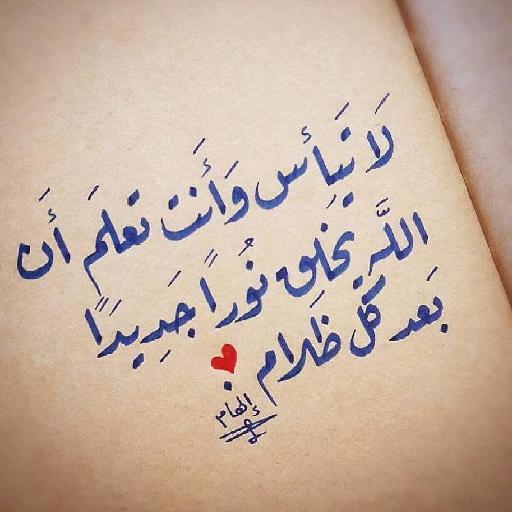 لَا تَيَأس وَأَنت تعلَم أَن
اللَّه يَخلق نُوراً جَدِيدَاً
بَعد كُل ظَلام .
إلهام